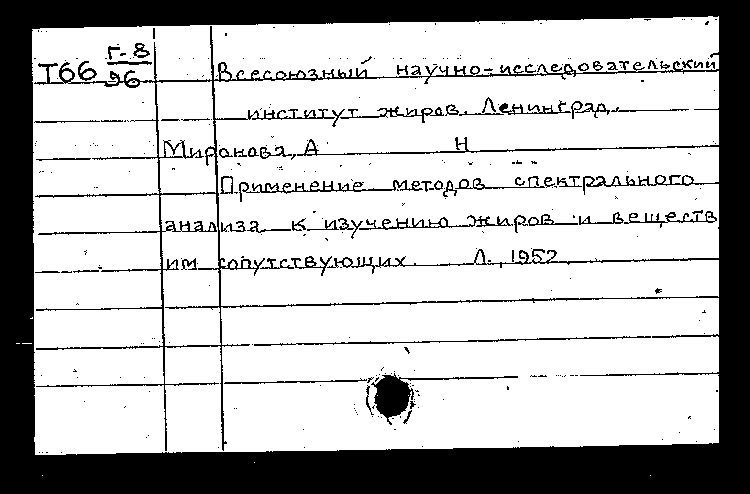 Т66 Г-8
96
Всесоюзный научно-исследовательский
институт жиров. Ленинград.
Миронова, А Н
Применение методов спектрального
анализа к изучению жиров и веществ
им сопутствующих. Л., 1952